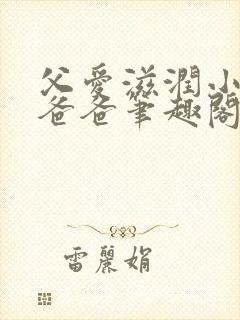 父愛滋潤小
爸爸筆趣閣
雷麗娟